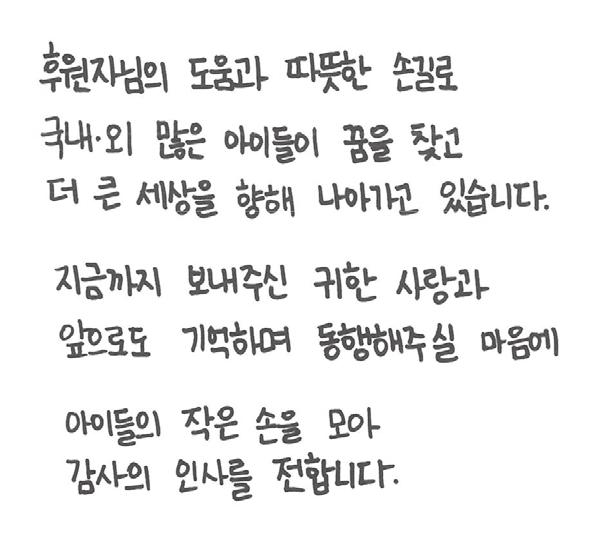 후원자님의 도움과 따뜻한 손길로
국내·외 많은 아이들이 꿈을 찾고
더 큰 세상을 향해 나아가고 있습니다.
지금까지 보내주신 귀한 사랑과
앞으로도 기억하며 동행해주실 마음에
아이들의 작은 손을 모아
감사의 인사를 전합니다.